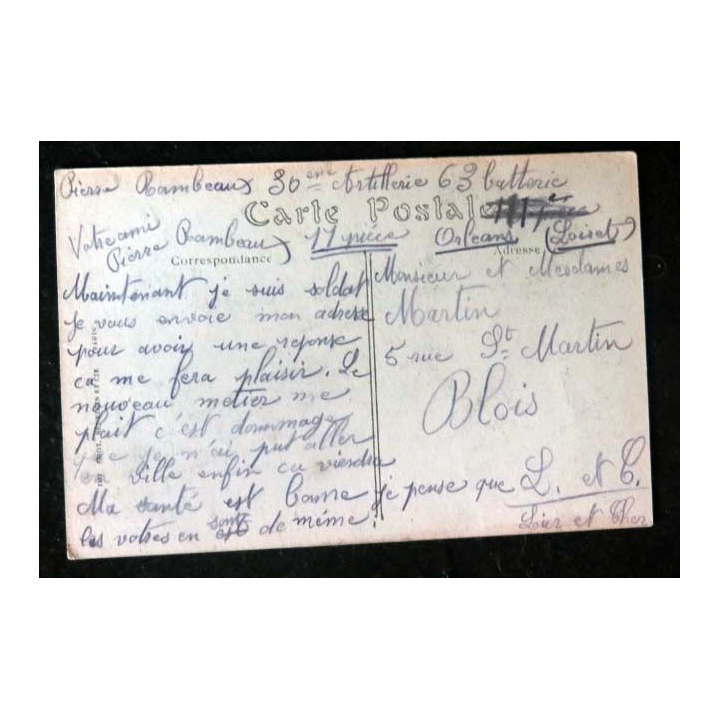 Pierre Rambeaux 30eme Artillerie 63 batterie
Carte Postale
Votre ami
Pierre Rambeau
11 pièce Orleans (Loiret)
Correspondance
Adresse
Maintenant je suis soldat
je vous envoie mon adresse
pour avoir une reponse
ca me fera plaisir. Le
nouveau metier me
plait c'est dommage
que je n'ai put aller
en ville enfin ca viendra
Ma santé est bonne je pense que
les votres en sont de même.
Monsieur et Mesdames
Martin
5 rue St Martin
Blois
L. et C.
Loir et Cher